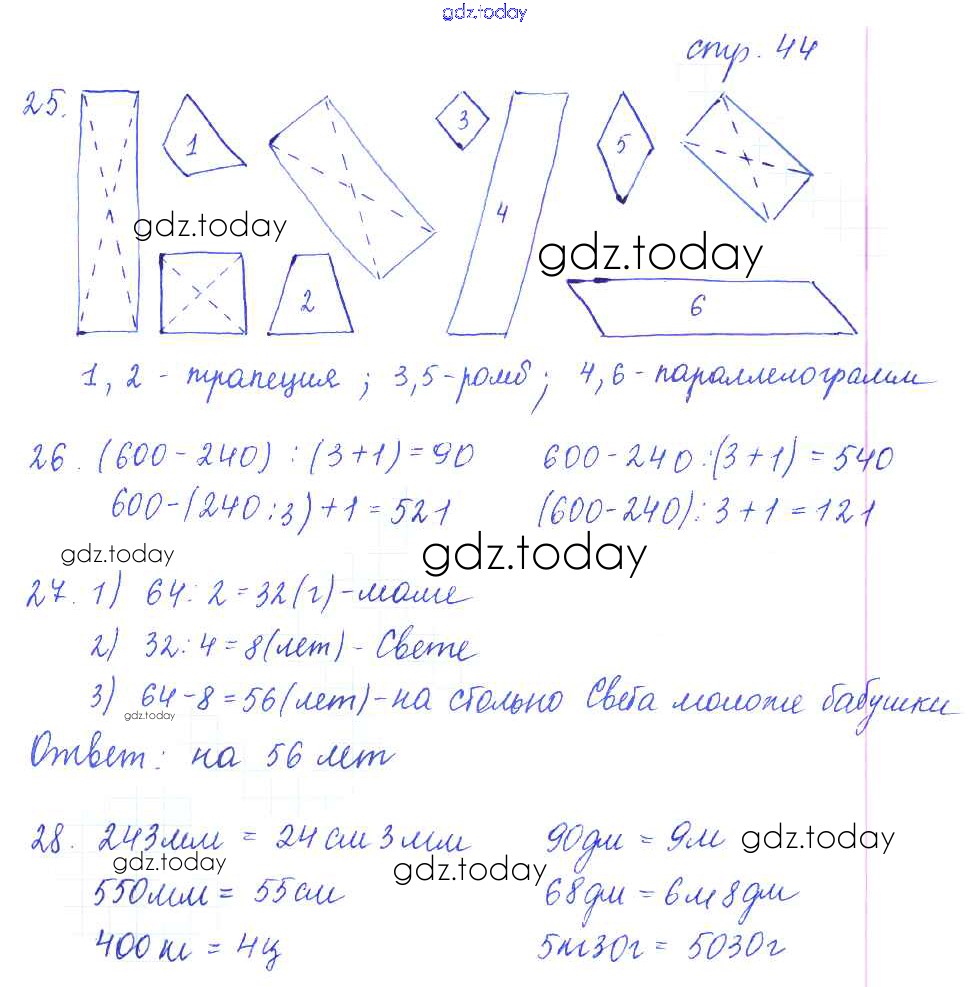 gdz.today
стр. 44
25.
1
3
5
4
gdz.today
gdz.today
2
6
1, 2 - трапеция ; 3,5 - ромб ; 4, 6 - параллелограмм
26. (600 - 240) : (3 + 1) = 90 600 - 240 : (3 + 1) = 540
600 - (240 : 3) + 1 = 521 (600 - 240) : 3 + 1 = 121
gdz.today gdz.today
27. 1) 64 : 2 = 32 (г) - маме
2) 32 : 4 = 8 (лет) - Свете
3) 64 - 8 = 56 (лет) - на столько Света моложе бабушки
gdz.today
Ответ: на 56 лет
28. 243 мм = 24 см 3 мм 90 дм = 9 м gdz.today
gdz.today gdz.today
550 мм = 55 см 68 дм = 6 м 8 дм
400 кг = 4 ц 5 кг 30 г = 5030 г